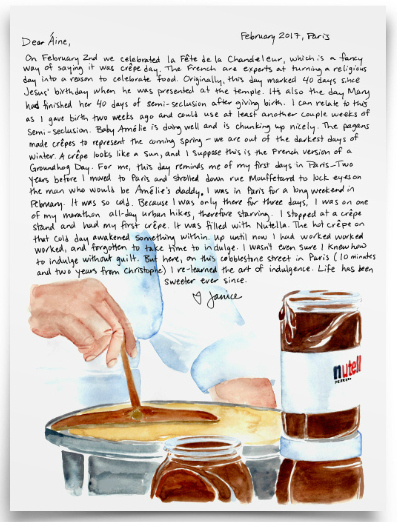 February 2017, Paris
Dear Áine,
On February 2nd we celebrated la Fête de la Chandeleur, which is a fancy
way of saying it was crêpe day. The French are experts at turning a religious
day into a reason to celebrate food. Originally, this day marked 40 days since
Jesus' birthday when he was presented at the temple. Its also the day Mary
had finished her 40 days of semi-seclusion after giving birth. I can relate to this
as I gave birth two weeks ago and could use at least another couple weeks of
semi-seclusion. Baby Amélie is doing well and is chunking up nicely. The pagans
made crêpes to represent the coming spring - we are out of the darkest days of
winter. A crêpe looks like a sun, and I suppose this is the French version of a
Groundhog Day. For me, this day reminds me of my first days in Paris-Two
years before I moved to Paris and strolled down rue Mouffetard to lock eyes on
the man who would be Amélie's daddy, I was in Paris for a long weekend in
February. It was so cold. Because I was only there for three days, I was on one
of my marathon all-day urban hikes, therefore starving. I stopped at a crêpe
stand and had my first crêpe. It was filled with Nutella. The hot crêpe on
that cold day awakened something within. Up until now I had worked worked
worked, and forgotten to take time to indulge. I wasn't even sure I knew how
to indulge without guilt. But here, on this cobblestone street in Paris (10 minutes
and two years from Christophe) I re-learned the art of indulgence. Life has been
sweeter ever since.
♡ Janice
nutell